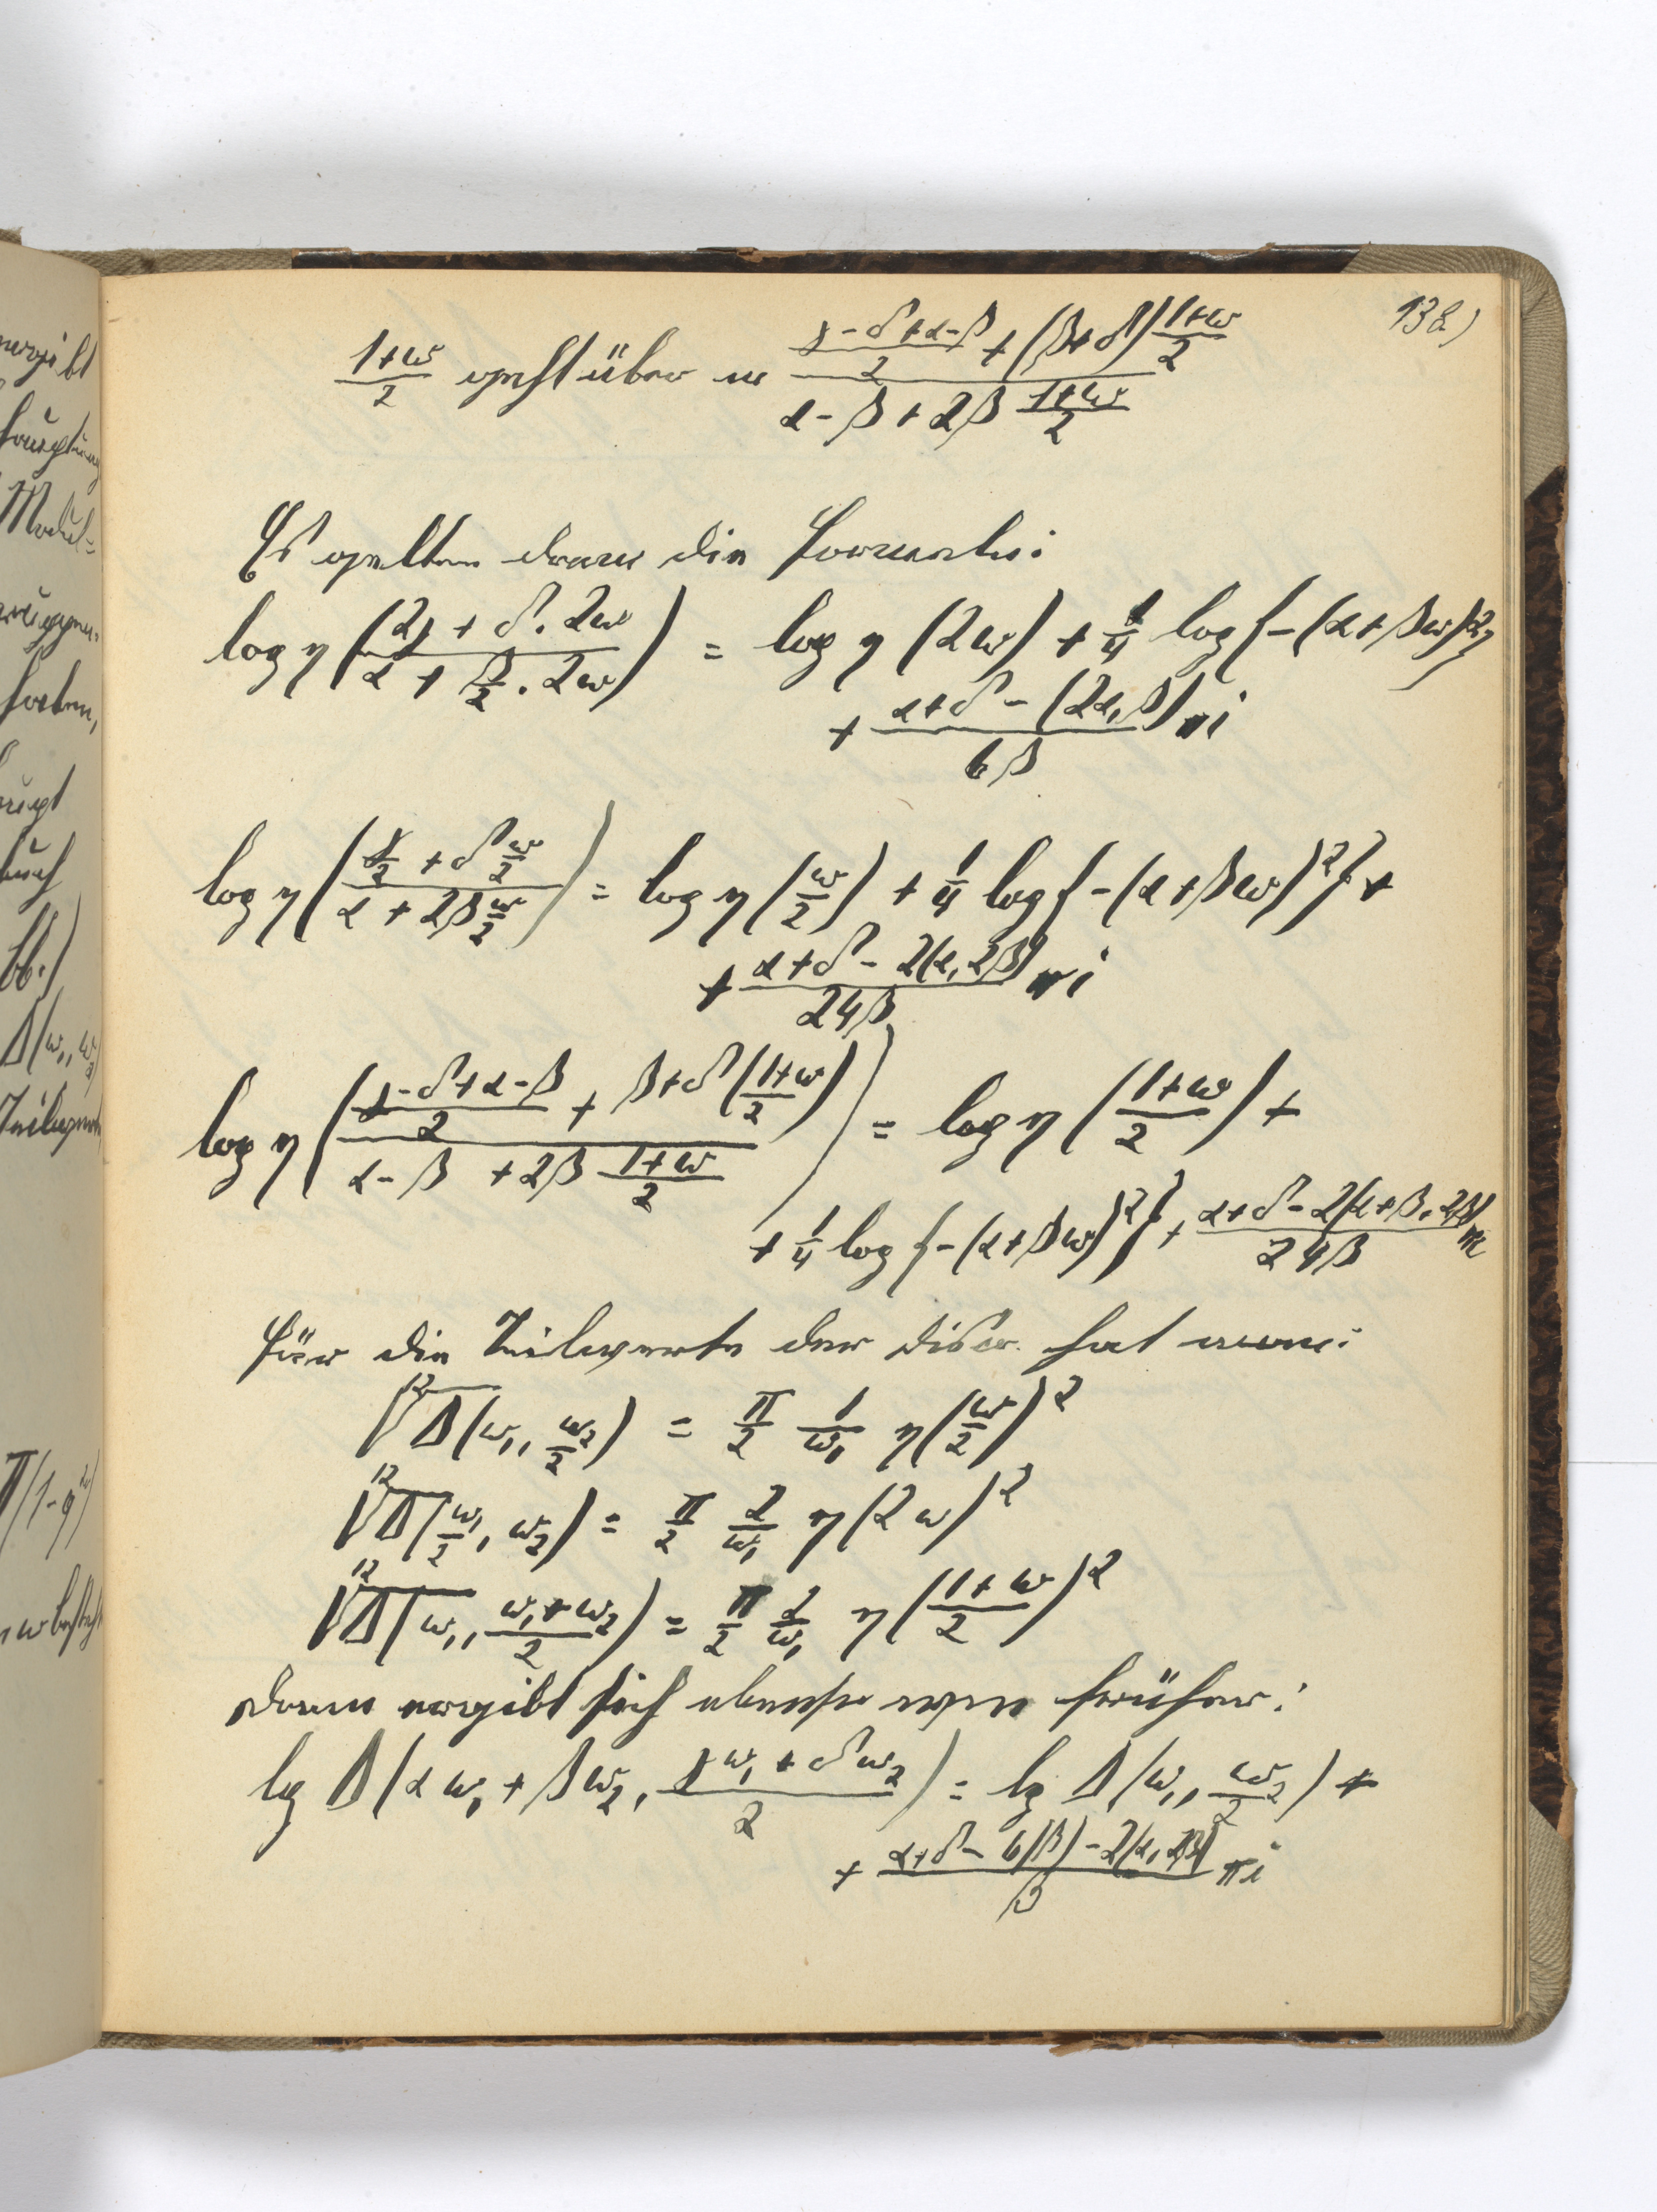 138)
(1+ω)/2 geht über in ((γ-δ+α-β)/2 + (β+δ) (1+ω)/2) / (α-β + 2β (1+ω)/2)
Es gelten dann die Formeln:
log η ((2γ + δ · 2ω) / (α + β/2 · 2ω)) = log η (2ω) + 1/4 log {-(α+βω)²}
+ (α+δ - (2α, β))/(6β) πi
log η ((γ/2 + δ ω/2) / (α + 2β ω/2)) = log η (ω/2) + 1/4 log {-(α+βω)²} +
+ (α+δ - 2(α, 2β))/(24β) πi
log η (((γ-δ+α-β)/2 + β+δ ((1+ω)/2)) / (α-β + 2β (1+ω)/2)) = log η ((1+ω)/2) +
+ 1/4 log {-(α+βω)²} + (α+δ - 2(α+β, 2β))/(24β) πi
Für die Teilwerte der Discr. hat man:
¹²√Δ(ω₁, ω₂/2) = π/2 1/ω₁ η(ω/2)²
¹²√Δ(ω₁/2, ω₂) = π/2 2/ω₁ η(2ω)²
¹²√Δ(ω₁, (ω₁+ω₂)/2) = π/2 2/ω₁ η((1+ω)/2)²
Dann ergibt sich ebenso wie früher:
lg Δ(αω₁ + βω₂, (γω₁ + δω₂)/2) = lg Δ(ω₁, ω₂/2) +
+ (α+δ - 6(β) - 2(α, 2β))/β πi